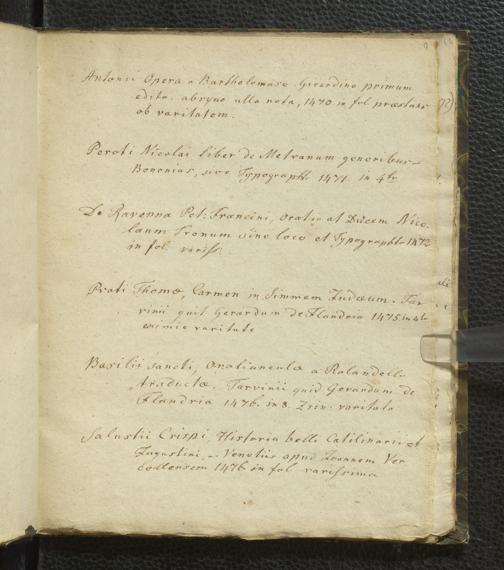 Antonii Opera a Bartholomaeo Girardino primum
edita. absque ulla nota, 1470 in fol praestans
ob raritatem.
Peroti Nicolai liber de Metranum generibus
Bononiae, sine Typographo 1471. in 4to
De Ravenna Pet: Francini, oratio at Ducem Nico-
laum Tronum sine loco et Typographo 1472
in fol. rariss
Prati Thomae, Carmen in Simmem Judaeum. Tar-
vinii quit Gerardum de Flandria 1475. in 4to
eximie raritate
Basilii sancti, Oratiuncula a Rolandello
traducta. Tarvinii quid Gerardum de
Flandria 1476. in 8. raritate
Salustii Crispi, Historia belli Catilinarii et
Jugurtini — Venetiis apud Joannem Ver
collensem 1476 in fol rarissima